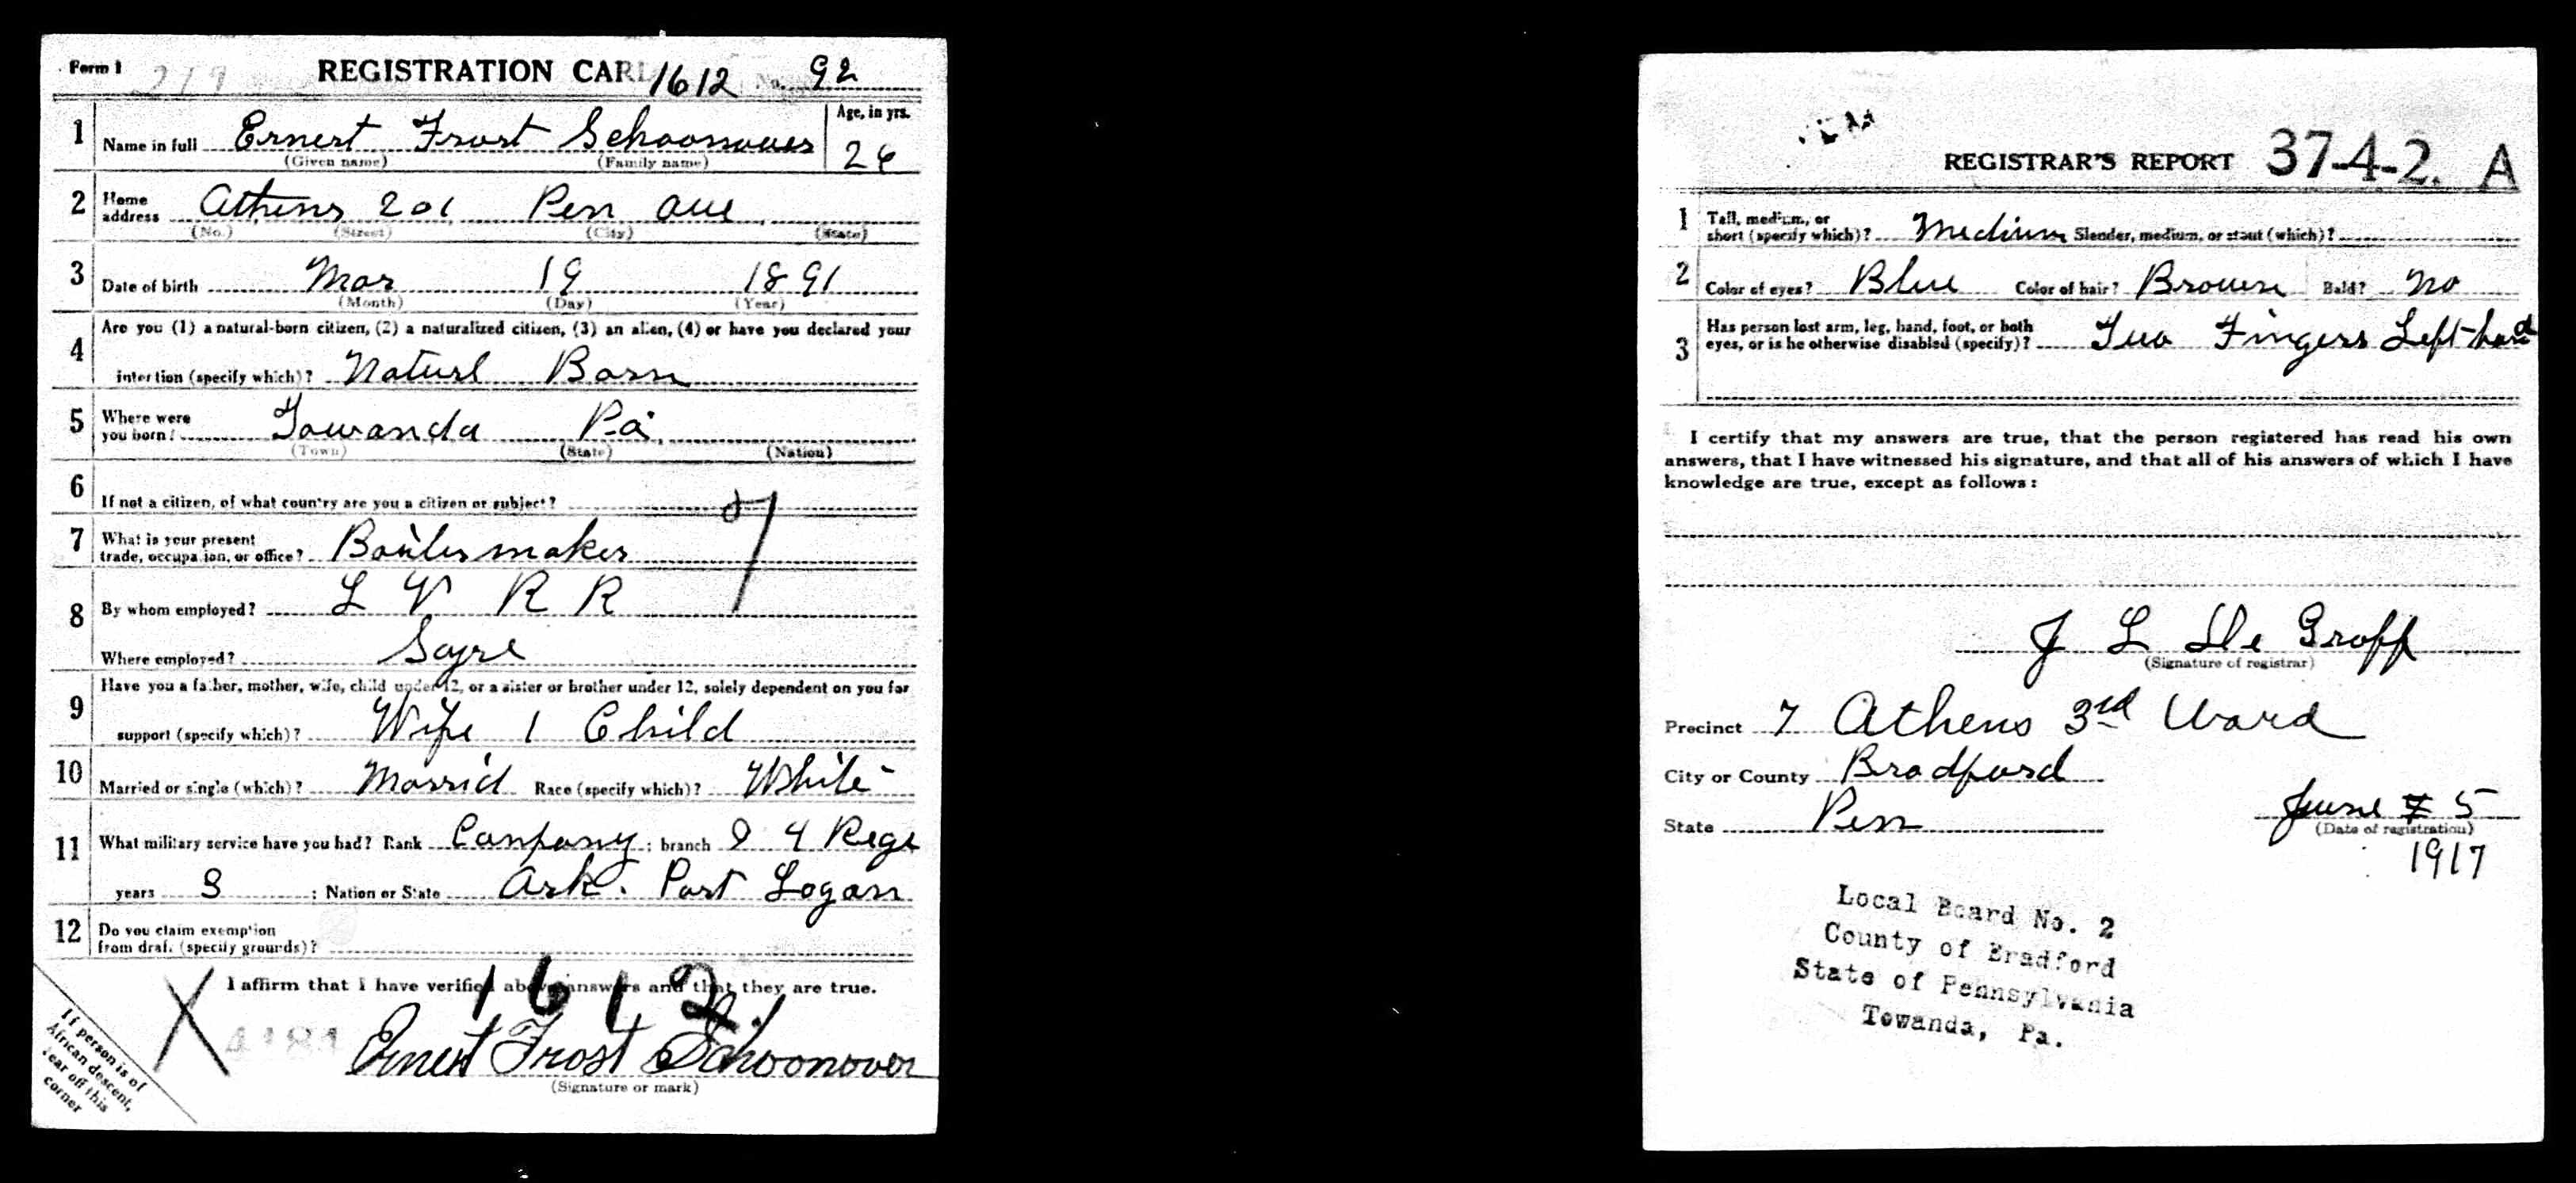 Form 1 219 REGISTRATION CARD 1612 No. 92
1 Name in full Ernest Frost Schoonover Age, in yrs. 26
(Given name) (Family name)
2 Home address Athens 201 Pen ave
(No.) (Street) (City) (State)
3 Date of birth Mar 19 1891
(Month) (Day) (Year)
4 Are you (1) a natural-born citizen, (2) a naturalized citizen, (3) an alien, (4) or have you declared your
intention (specify which)? Naturl Born
5 Where were you born? Towanda Pa.
(Town) (State) (Nation)
6 If not a citizen, of what country are you a citizen or subject?
7 What is your present trade, occupation, or office? Boilermaker
8 By whom employed? L V R R
Where employed? Sayre
9 Have you a father, mother, wife, child under 12, or a sister or brother under 12, solely dependent on you for
support (specify which)? Wife 1 Child
10 Married or single (which)? Married Race (specify which)? White
11 What military service have you had? Rank Company ; branch 9 4 Rege
years 3 ; Nation or State Ark. Port Logan
12 Do you claim exemption from draft (specify grounds)?
I affirm that I have verified above answers and that they are true.
1612.
4184
Ernest Frost Schoonover
(Signature or mark)
If person is of
African descent,
tear off this
corner
REGISTRAR'S REPORT 37-4-2. A
1 Tall, medium, or short (specify which)? Medium Slender, medium, or stout (which)?
2 Color of eyes? Blue Color of hair? Brown Bald? No
3 Has person lost arm, leg, hand, foot, or both eyes, or is he otherwise disabled (specify)? Two Fingers Left hand
I certify that my answers are true, that the person registered has read his own
answers, that I have witnessed his signature, and that all of his answers of which I have
knowledge are true, except as follows:
J L De Groff
(Signature of registrar)
Precinct 7 Athens 3rd Ward
City or County Bradford
State Pen June 5
(Date of registration)
1917
Local Board No. 2
County of Bradford
State of Pennsylvania
Towanda, Pa.